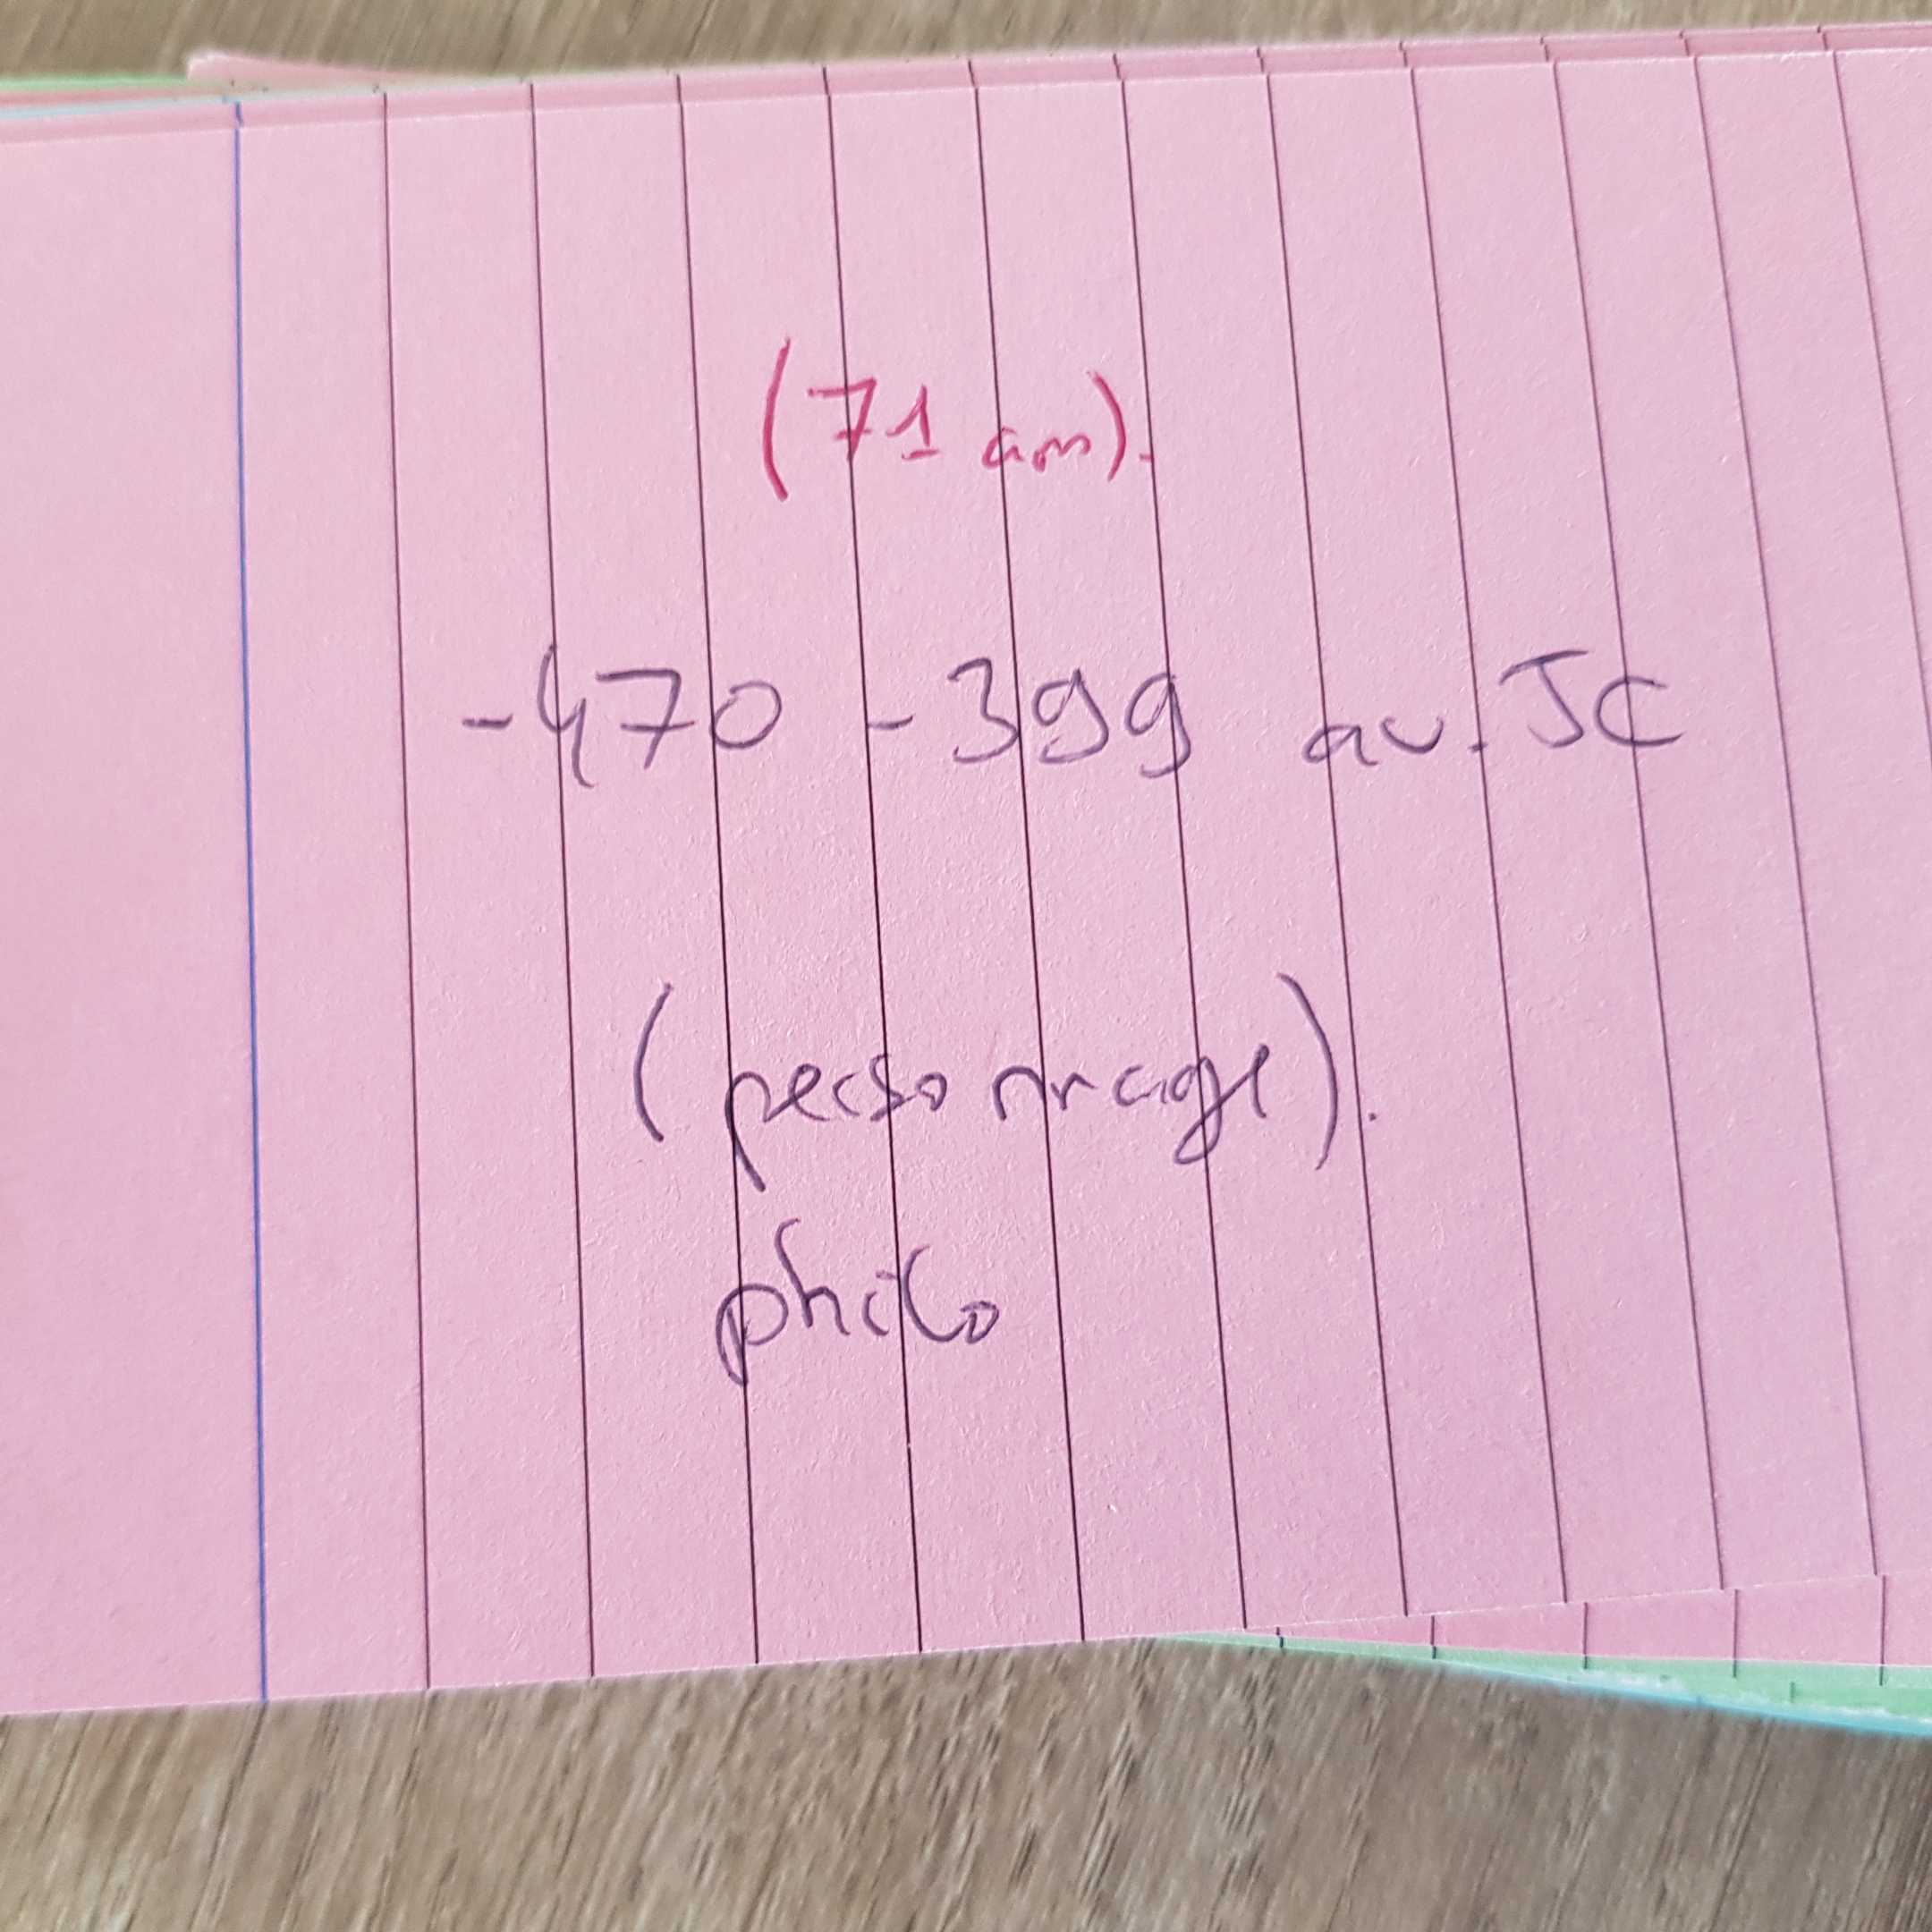 (71 ans).
-470 -399 av. JC
(personnage).
philo